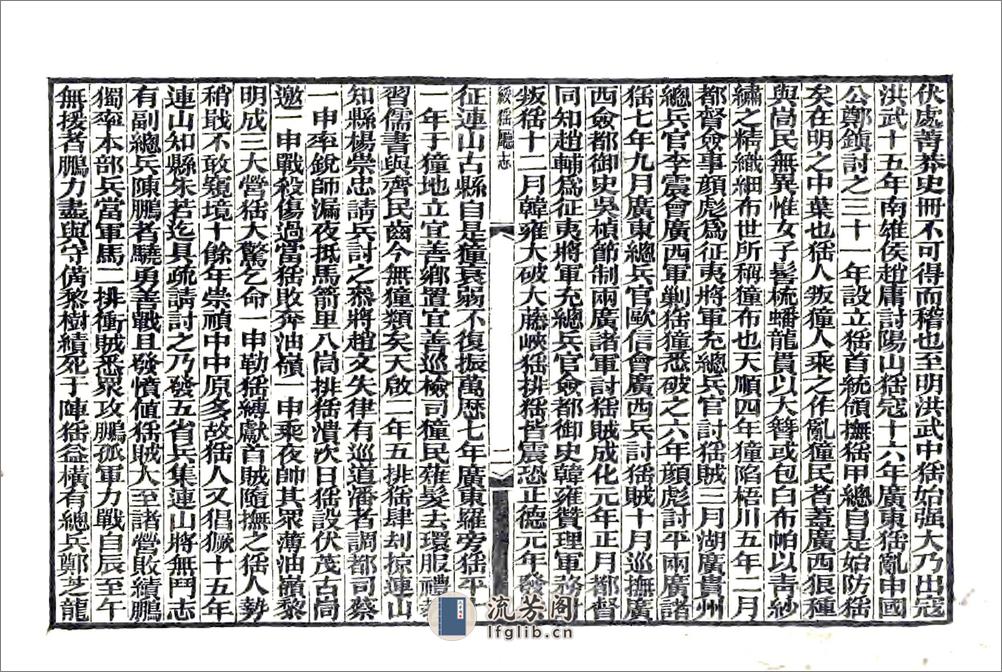 伏處菁莽史冊不可得而稽也至明洪武中猺始强大乃出寇
洪武十五年南雄侯趙庸討陽山猺寇十六年廣東猺亂申國
公鄭鎮討之三十一年設立猺首統領撫猺甲總自是始防猺
矣在明之中葉也猺人叛獞人乘之作亂獞民者蓋廣西狼種
與啇民無異惟女子髻梳蟠龍貫以大簪或包白布帕以靑紗
繡之精織細布世所稱獞布也天順四年獞陷梧川五年二月
都督僉事顔彪爲征夷將軍充總兵官討猺賊三月湖廣貴州
總兵官李震會廣西軍剿猺獞悉破之六年顔彪討平兩廣諸
猺七年九月廣東總兵官歐信會廣西兵討猺賊十月巡撫廣
西僉都御史吳禎節制兩廣諸軍討猺賊成化元年正月都督
同知趙輔爲征夷將軍充總兵官僉都御史韓雍贊理軍務討
叛猺十二月韓雍大破大藤峽猺排猺皆震恐正德元年發兵
綏猺廳志
二
征連山古縣自是獞衰弱不復振萬歷七年廣東羅旁猺平十
一年于獞地立宜善鄉置宜善巡檢司獞民薙髮去環服禮敎
習儒書與齊民齒今無獞類矣天啟二年五排猺肆刦掠連山
知縣楊崇忠請兵討之叅將趙文失律有巡道潘者調都司蔡
一申率銳師漏夜抵馬箭里八崗排猺潰次日猺設伏茂古崗
邀一申戰殺傷過當猺敗奔油嶺一申乘夜帥其眾薄油嶺黎
明成三大營猺大驚乞命一申勒猺縛獻首賊隨撫之猺人勢
稍戢不敢窺境十餘年崇禎中中原多故猺人又猖獗十五年
連山知縣朱若迄具疏請討之乃發五省兵集連山將無鬥志
有副總兵陳鵬者驍勇善戰且發憤値猺賊大至諸營敗績鵬
獨率本部兵當軍馬二排衝賊悉眾攻鵬孤軍力戰自辰至午
無援者鵬力盡與守備黎樹績死于陣猺益橫有總兵鄭芝龍
流芳阁
lfglib.cn